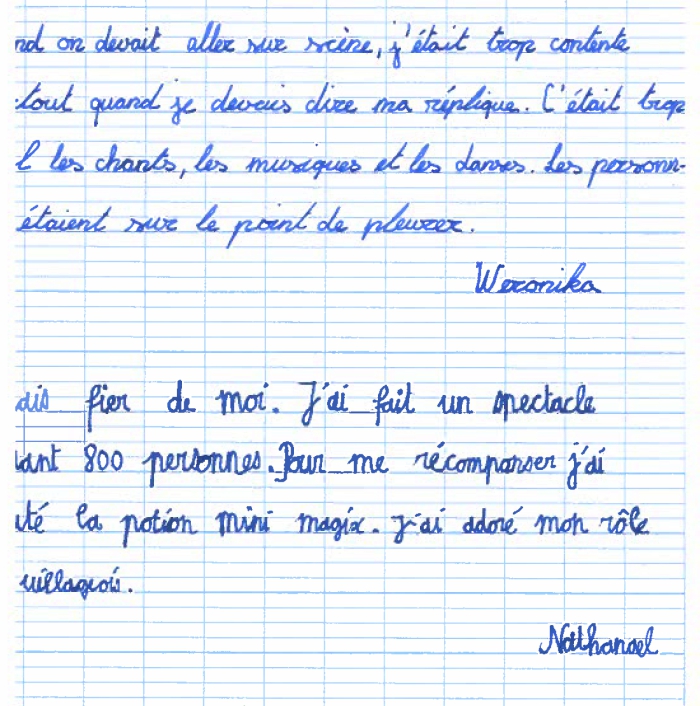 nd on devait aller sur scène, j'était trop contente
tout quand je devais dire ma réplique. C'était trop
l les chants, les musiques et les danses. Les personn-
étaient sur le point de pleurer.
Weronika
ais fier de moi. J'ai fait un spectacle
vant 800 personnes. Pour me récompanser j'ai
uté la potion mini magix. J'ai adoré mon rôle
villageois.
Nathanael